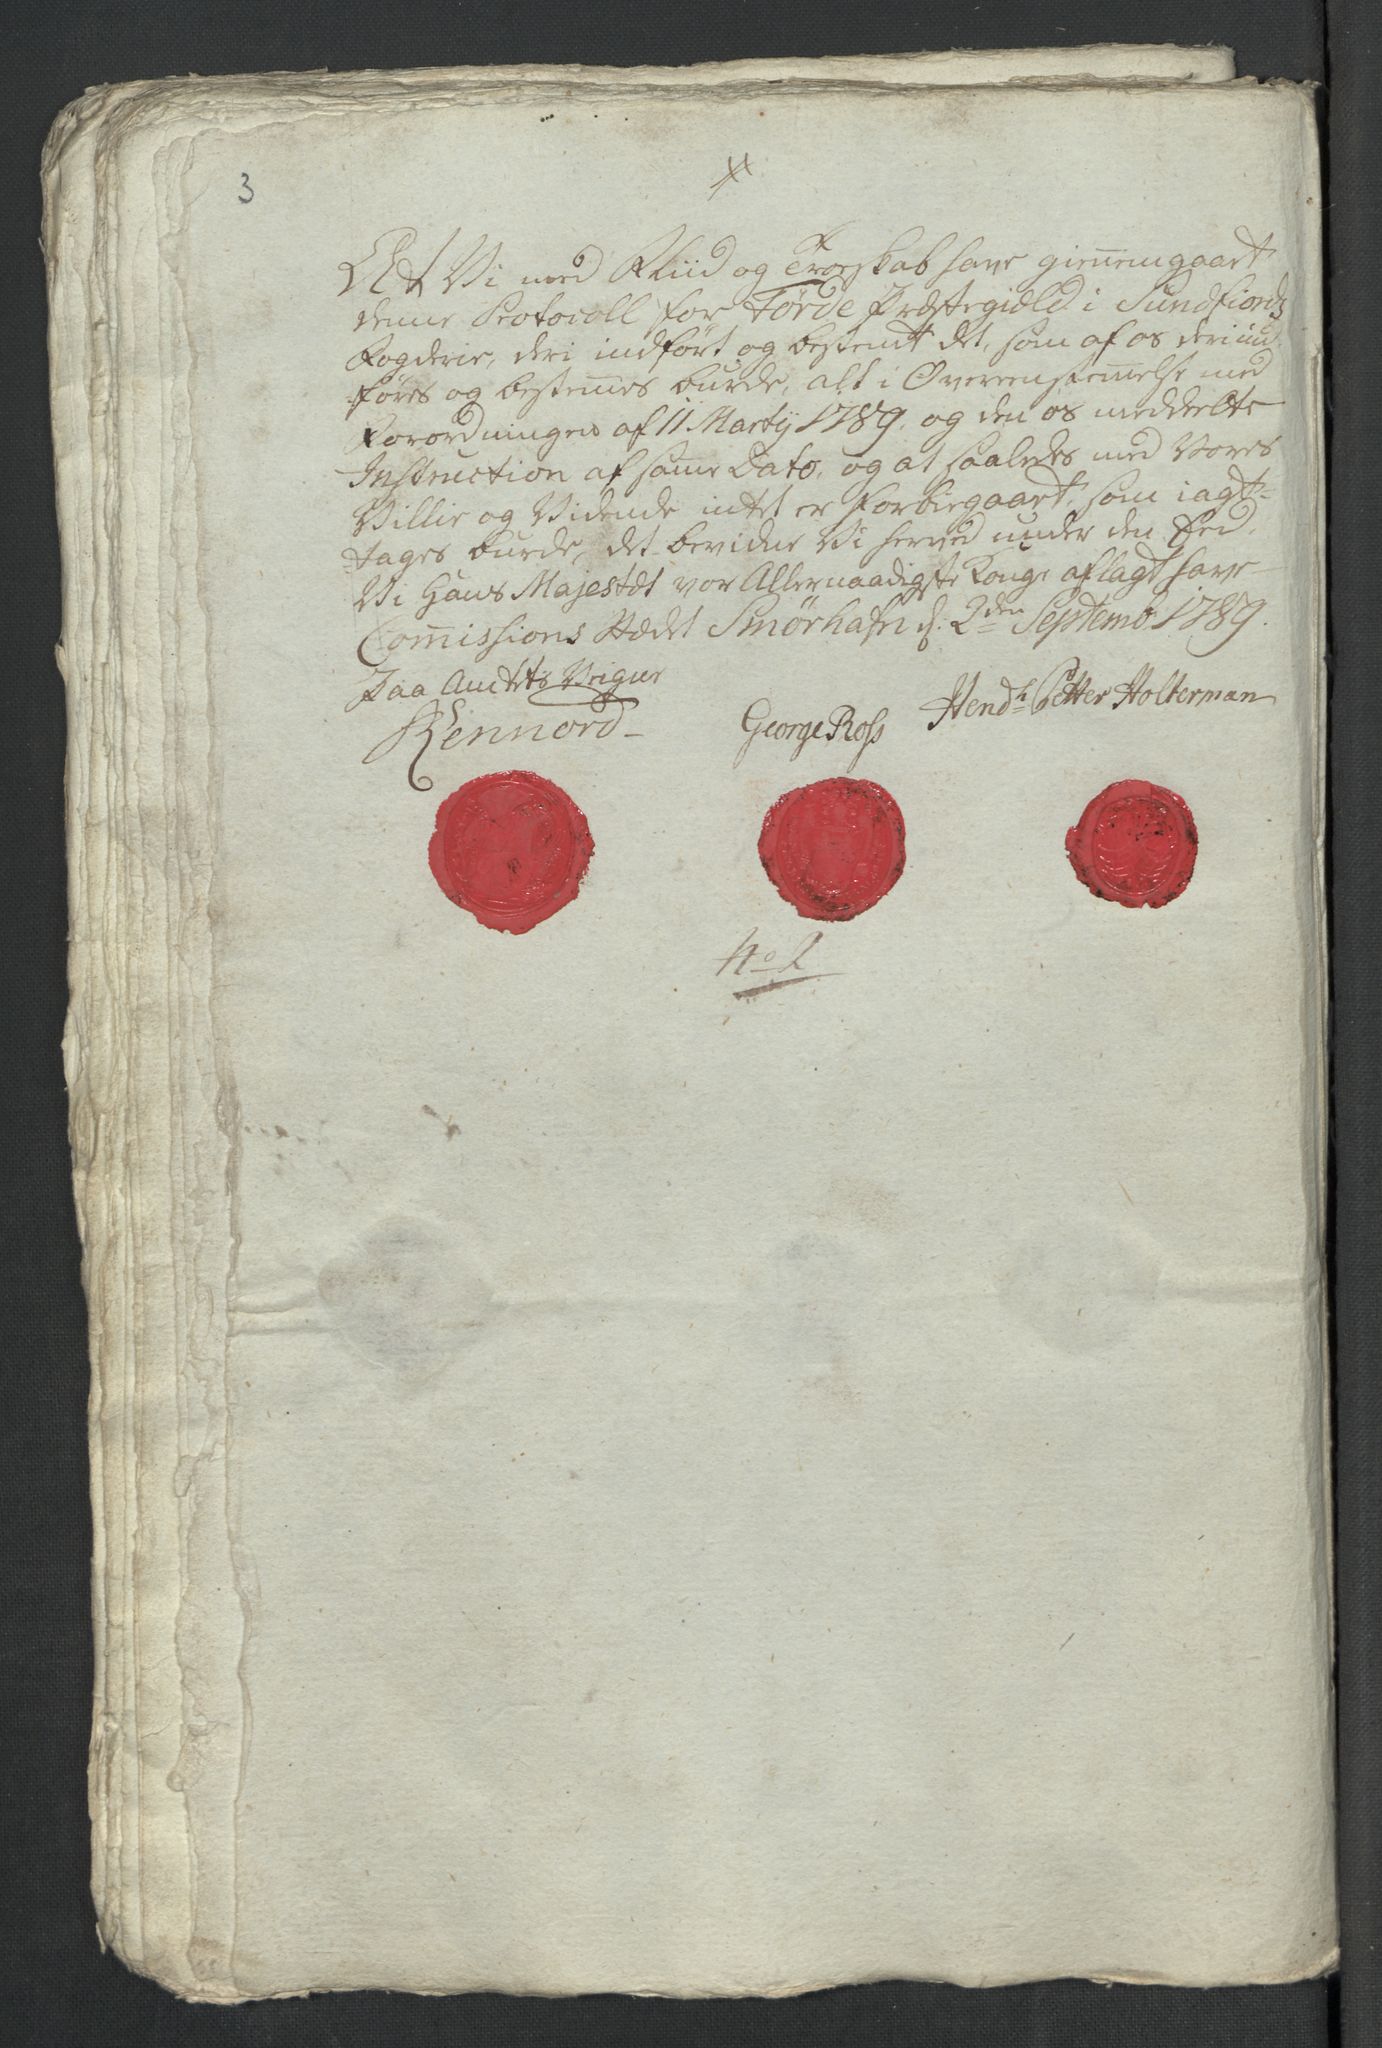 3
At Vi med Fliid og Troeskab have gien̄emgaaet
denne Protocoll for Førde Præstegield i Sundfiords
Fogderie, deri indført og bestemt det, som af os deri ind-
føres og besten̄es burde, alt i Overeenstem̄else med
Forordningen af 11 Martÿ 1789, og den os meddeelte
Instruction af sam̄e Dato, og at saaledes med Vores
Villie og Vidende intet er forbiegaaet, som iagt-
tages burde, det bevidne Vi herved under den Eed,
Vi Hans Majestæt vor Allernaadigste Konge aflagt have
Com̄issions Stædet Smørhafn d. 2den Septembr 1789.
Paa Amtets Veigne
Kennord
George Ross
Hendk Petter Holterman
No 2